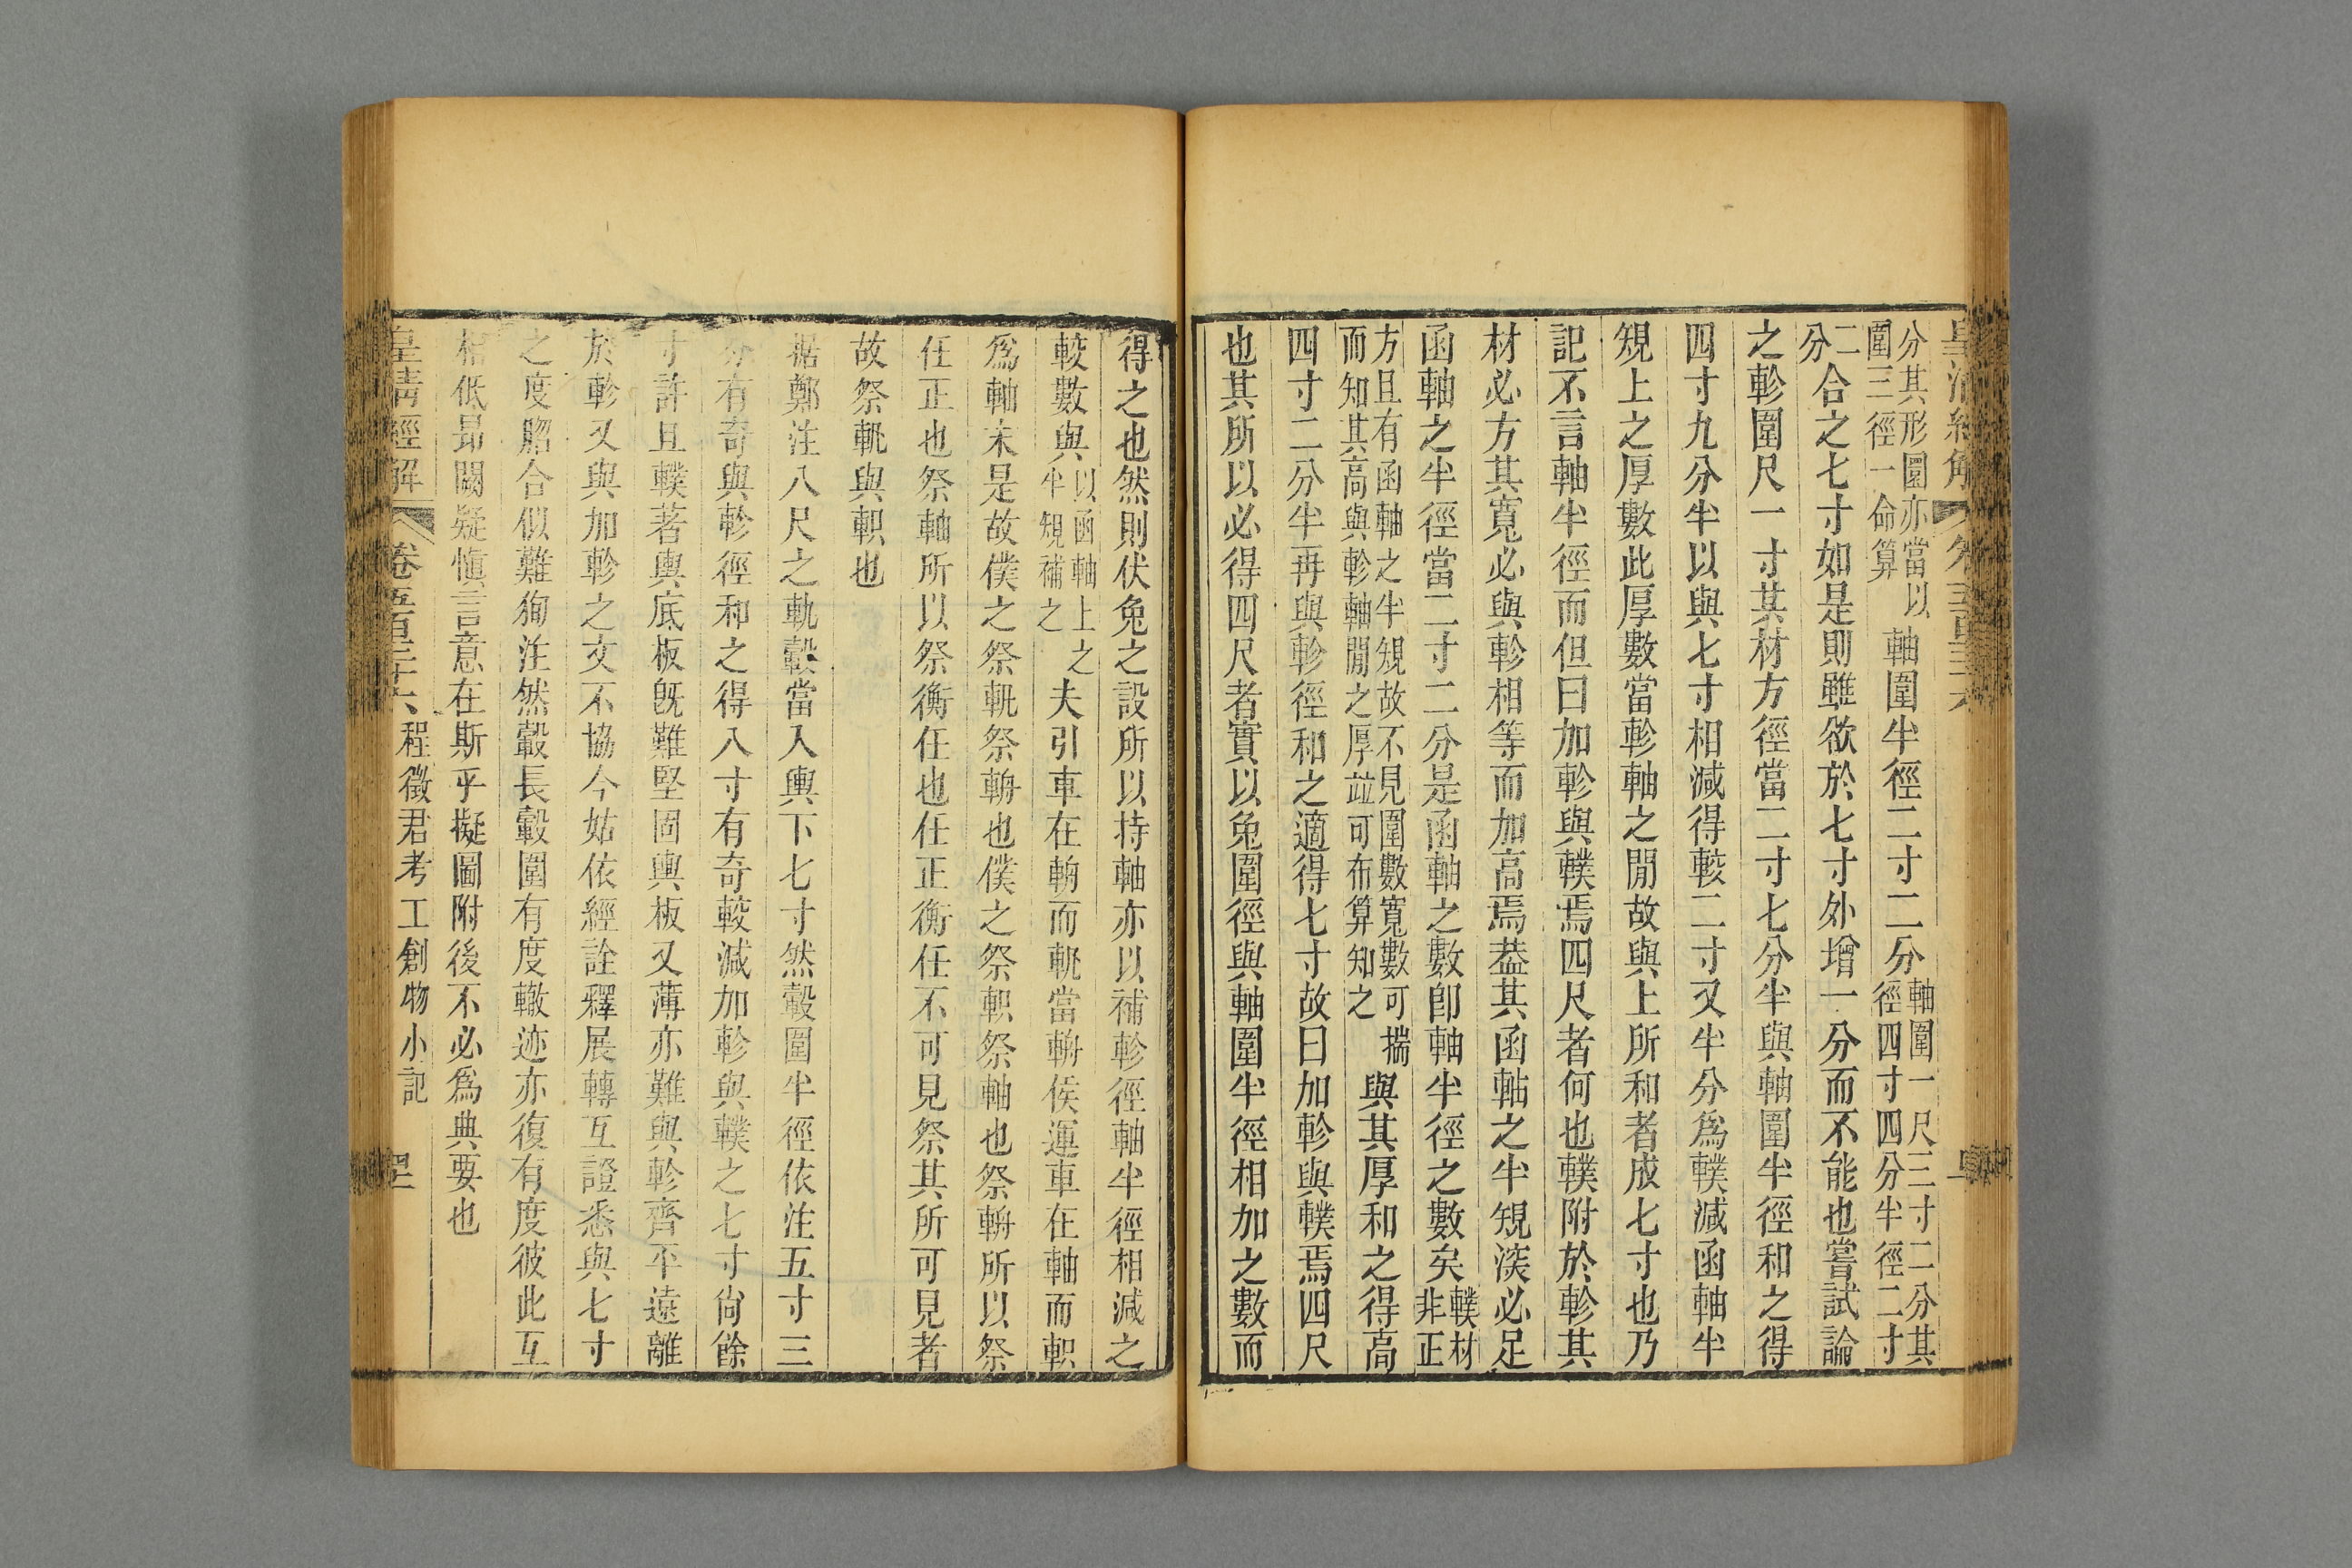 分其形圜亦當以
圍三徑一命算
軸圍半徑二寸二分
軸圍一尺三寸二分其
徑四寸四分半徑二寸
二
分
合之七寸如是則雖欲於七寸外增一分而不能也嘗試論
之軫圍尺一寸其材方徑當二寸七分半與軸圍半徑和之得
四寸九分半以與七寸相減得較二寸又半分爲轐減函軸半
規上之厚數此厚數當軫軸之閒故與上所和者成七寸也乃
記不言軸半徑而但曰加軫與轐焉四尺者何也轐附於軫其
材必方其寬必與軫相等而加高焉葢其函軸之半規深必足
函軸之半徑當二寸二分是函軸之數卽軸半徑之數矣
轐材
非正
方且有函軸之半規故不見圍數寬數可揣
而知其高與軫軸閒之厚竝可布算知之
與其厚和之得高
四寸二分半再與軫徑和之適得七寸故曰加軫與轐焉四尺
也其所以必得四尺者實以兔圍徑與軸圍半徑相加之數而
得之也然則伏兔之設所以持軸亦以補軫徑軸半徑相減之
較數與
以函軸上之
半規補之
夫引車在輈而軏當輈侯運車在軸而軹
爲軸末是故僕之祭軏祭輈也僕之祭軹祭軸也祭輈所以祭
任正也祭軸所以祭衡任也任正衡任不可見祭其所可見者
故祭軏與軹也
據鄭注八尺之軌轂當入輿下七寸然轂圍半徑依注五寸三
分有奇與軫徑和之得八寸有奇較減加軫與轐之七寸尙餘
寸許且轐著輿底板旣難堅固輿板又薄亦難與軫齊平遠離
於軫又與加軫之文不協今姑依經詮釋展轉互證悉與七寸
之度脗合似難徇注然轂長轂圍有度轍迹亦復有度彼此互
相低昻闕疑愼言意在斯乎擬圖附後不必爲典要也
皇清經解
卷五百三十六
程徵君考工創物小記